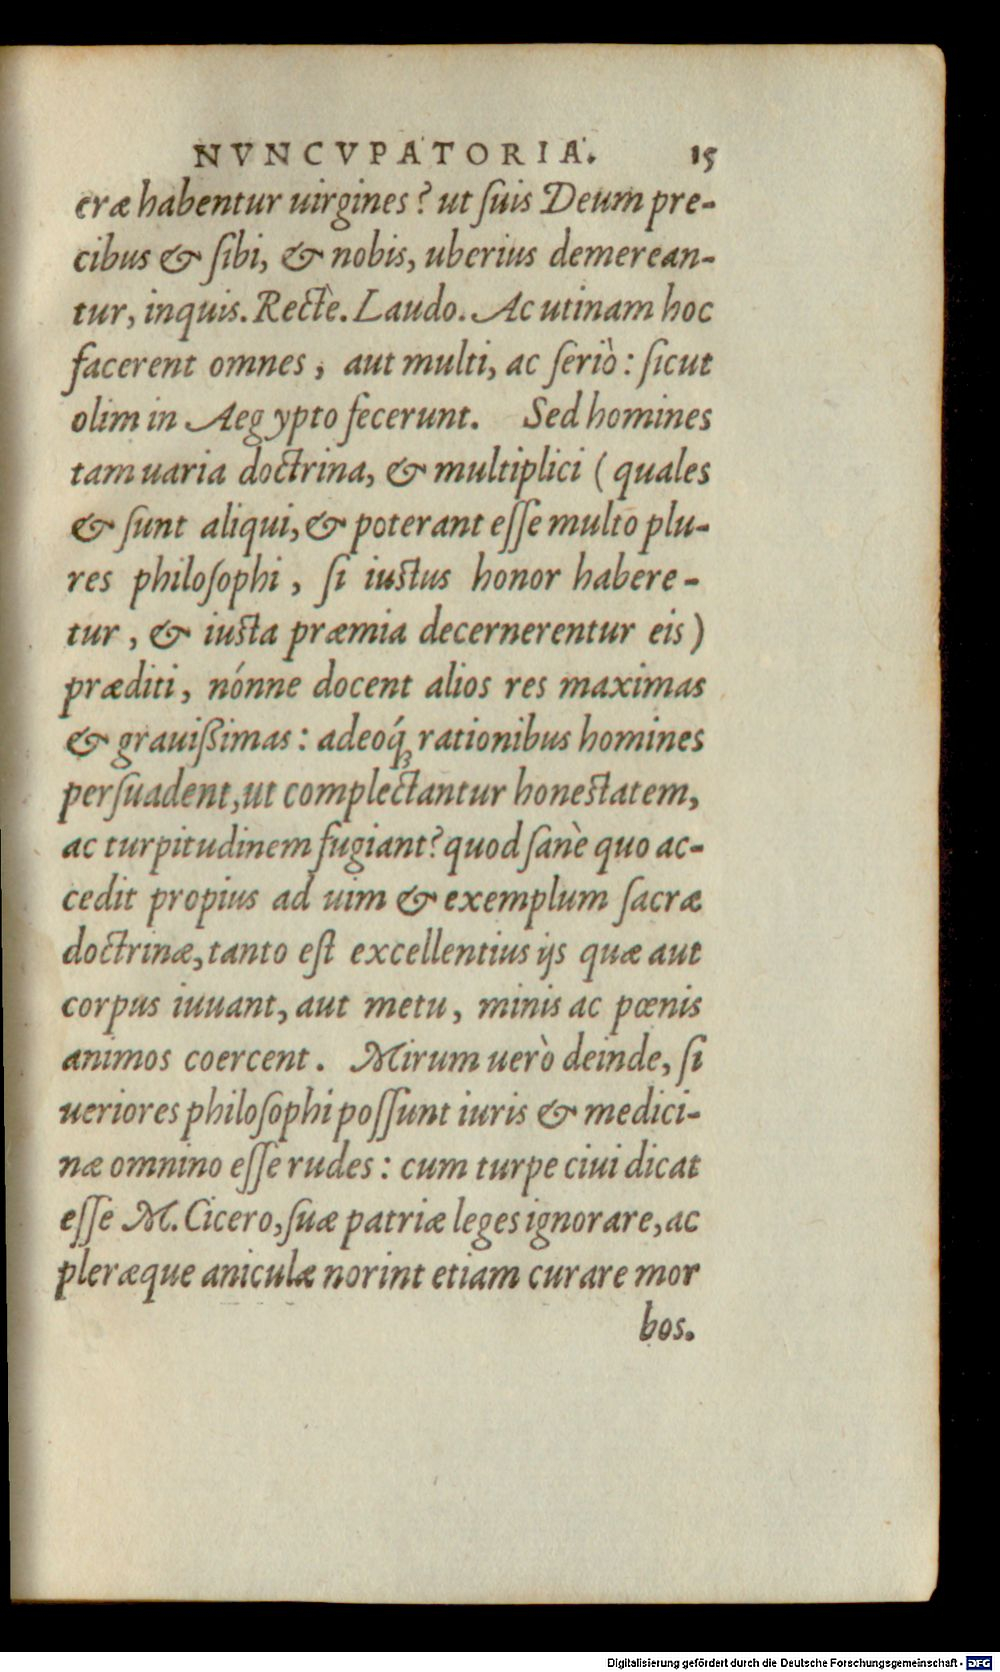 NVNCVPATORIA. 15
cræ habentur uirgines? ut ſuis Deum pre-
cibus & ſibi, & nobis, uberius demerean-
tur, inquis. Rectè. Laudo. Ac utinam hoc
facerent omnes, aut multi, ac ſeriò: ſicut
olim in Aegypto fecerunt. Sed homines
tam uaria doctrina, & multiplici (quales
& ſunt aliqui, & poterant eſſe multo plu-
res philoſophi, ſi iustus honor habere-
tur, & iusta præmia decernerentur eis)
præditi, nónne docent alios res maximas
& grauißimas: adeóq́ꝫ rationibus homines
perſuadent, ut complectantur honestatem,
ac turpitudinem fugiant? quod ſanè quo ac-
cedit propius ad uim & exemplum ſacræ
doctrinæ, tanto eſt excellentius ijs quæ aut
corpus iuuant, aut metu, minis ac pœnis
animos coercent. Mirum uerò deinde, ſi
ueriores philoſophi poſſunt iuris & medici-
næ omnino eſſe rudes: cum turpe ciui dicat
eſſe M. Cicero, ſuæ patriæ leges ignorare, ac
pleræque aniculæ norint etiam curare mor
bos.
Digitalisierung gefördert durch die Deutsche Forschungsgemeinschaft - DFG